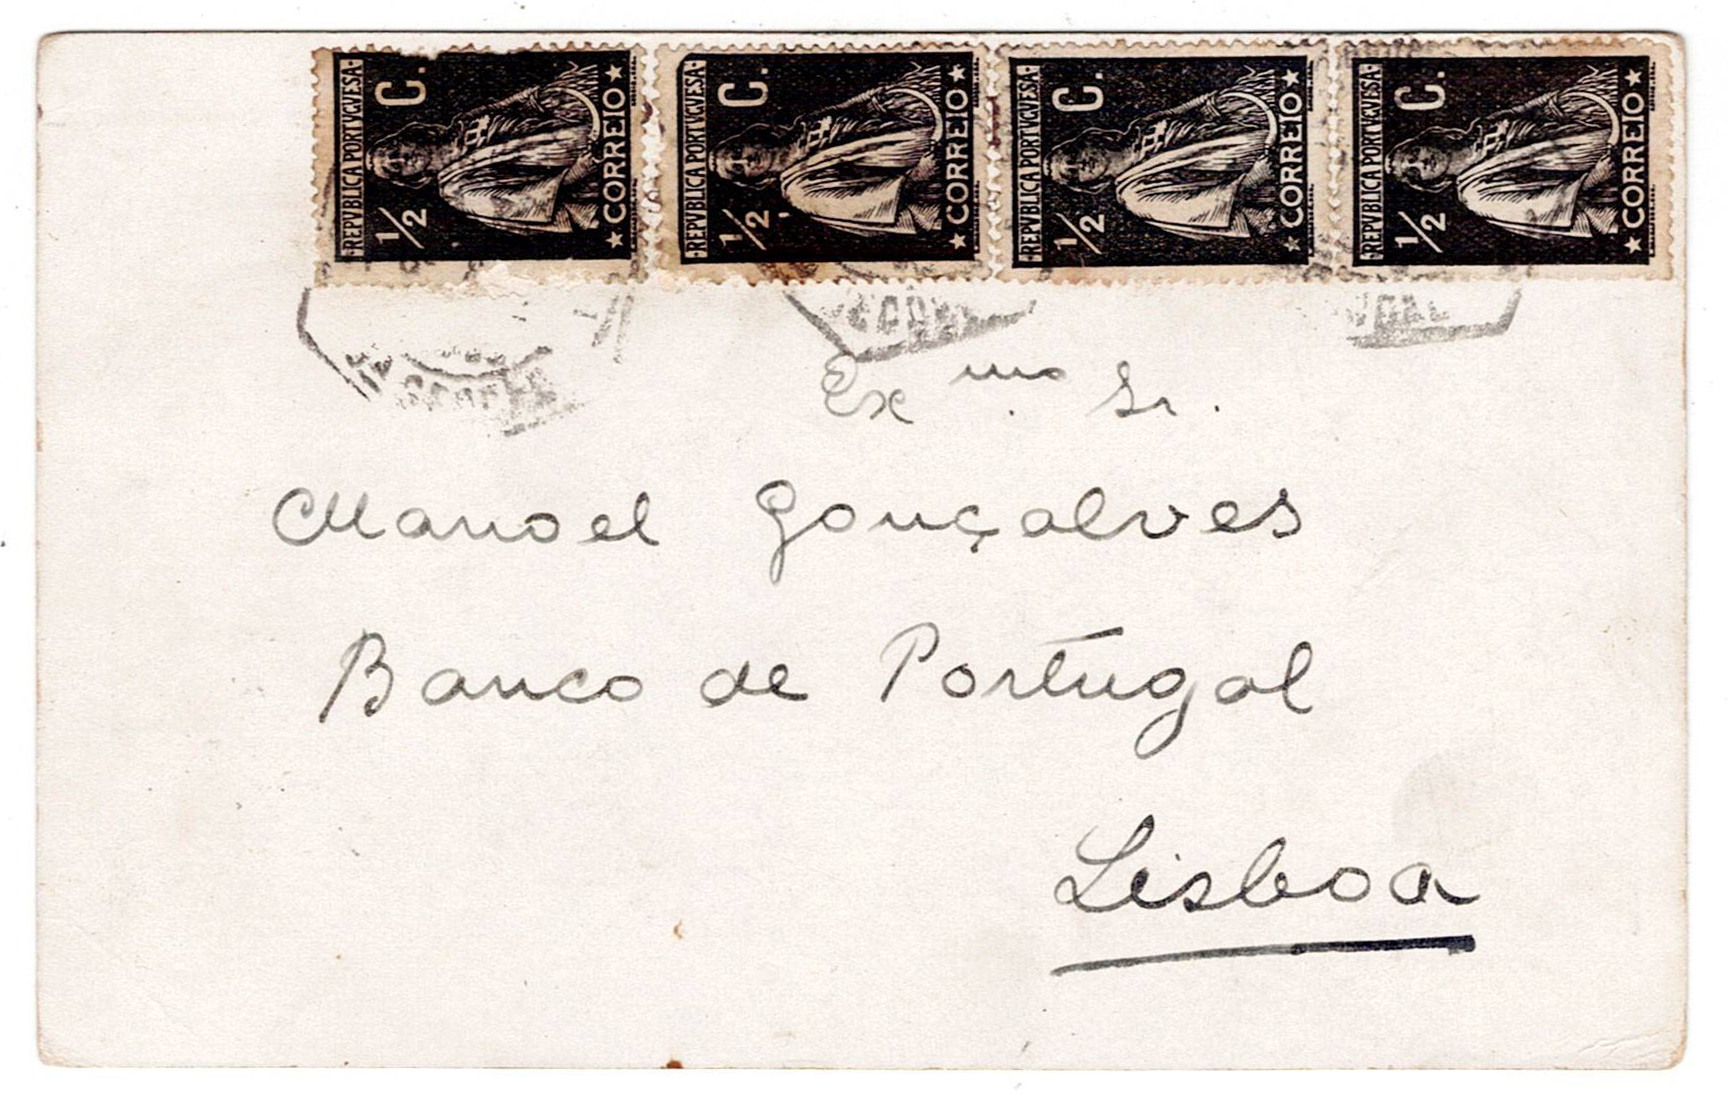 REPVBLICA PORTVGVESA ½ C. CORREIO
REPVBLICA PORTVGVESA ½ C. CORREIO
REPVBLICA PORTVGVESA ½ C. CORREIO
REPVBLICA PORTVGVESA ½ C. CORREIO
Exmo. Sr.
Manoel Gonçalves
Banco de Portugal
Lisboa